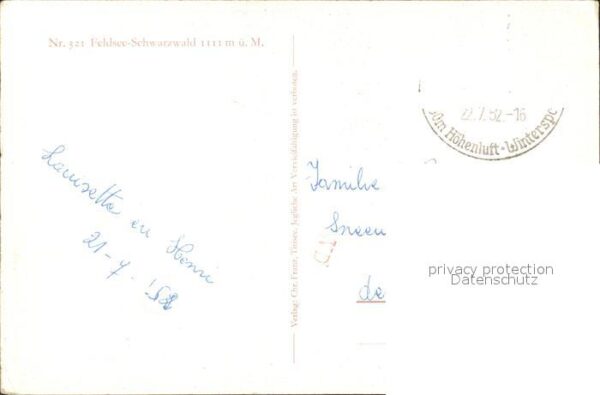 Nr. 321 Feldsee-Schwarzwald 1111 m ü. M.
22.7.52.-16
0m Höhenluft-Winterspo
Familie
Sneeu
de
en Henri
21-7-'52
Verlag: Chr. Franz, Titisee. Jegliche Art Vervielfältigung ist verboten.
privacy protection
Datenschutz